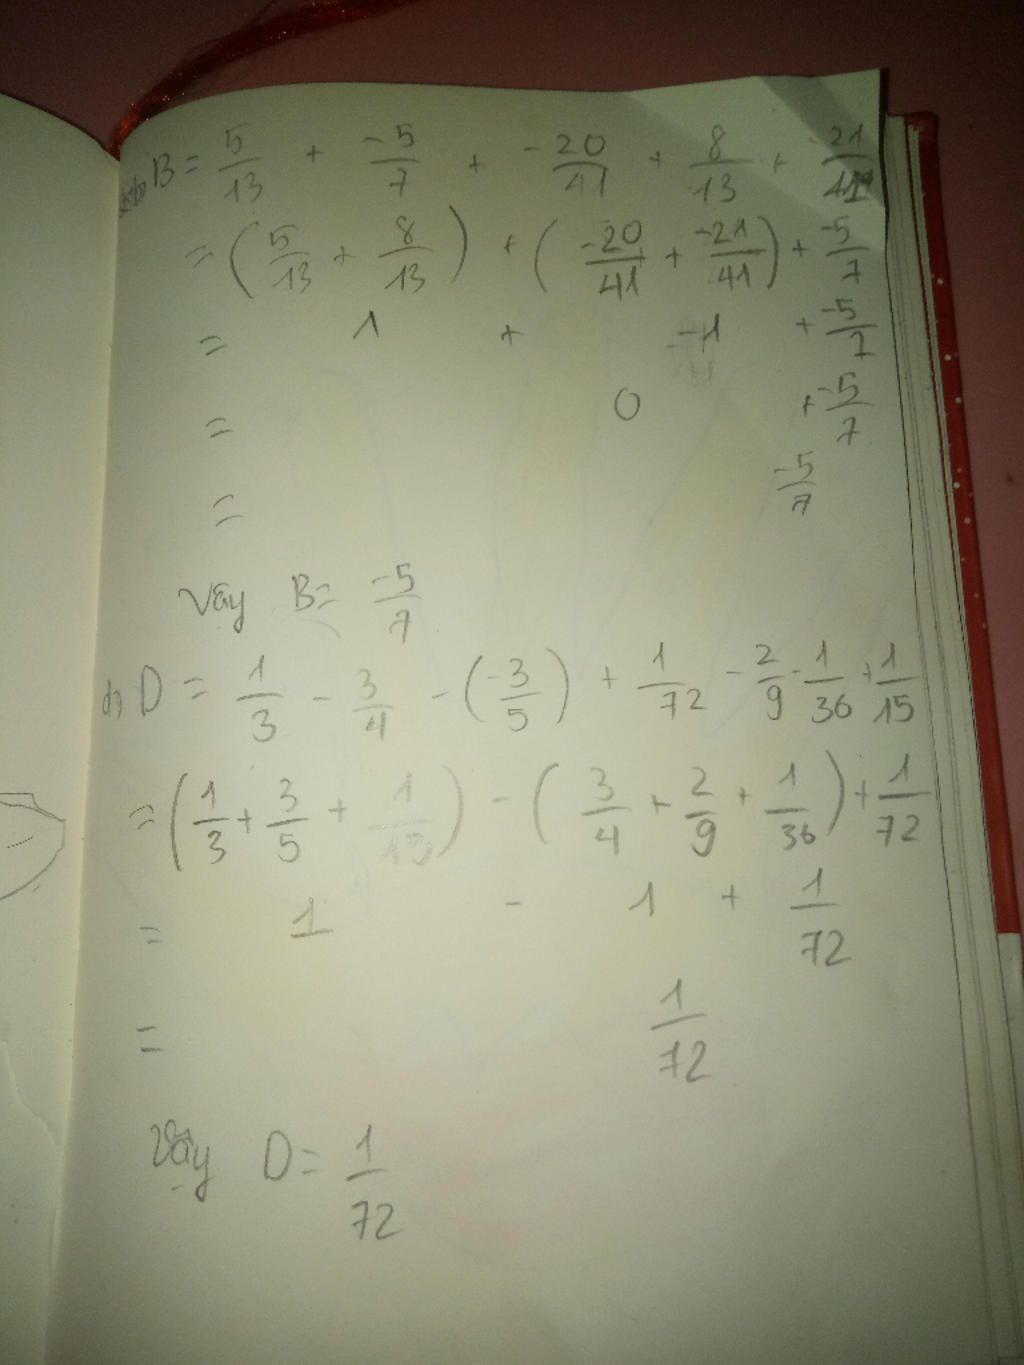 B = 5/13 + -5/7 + -20/41 + 8/13 + -21/41
= (5/13 + 8/13) + (-20/41 + -21/41) + -5/7
= 1 + -1 + -5/7
= 0 + -5/7
= -5/7
Vây B = -5/7
d, D = 1/3 - 3/4 - (-3/5) + 1/72 - 2/9 - 1/36 + 1/15
= (1/3 + 3/5 + 1/15) - (3/4 + 2/9 + 1/36) + 1/72
= 1 - 1 + 1/72
= 1/72
Vây D = 1/72